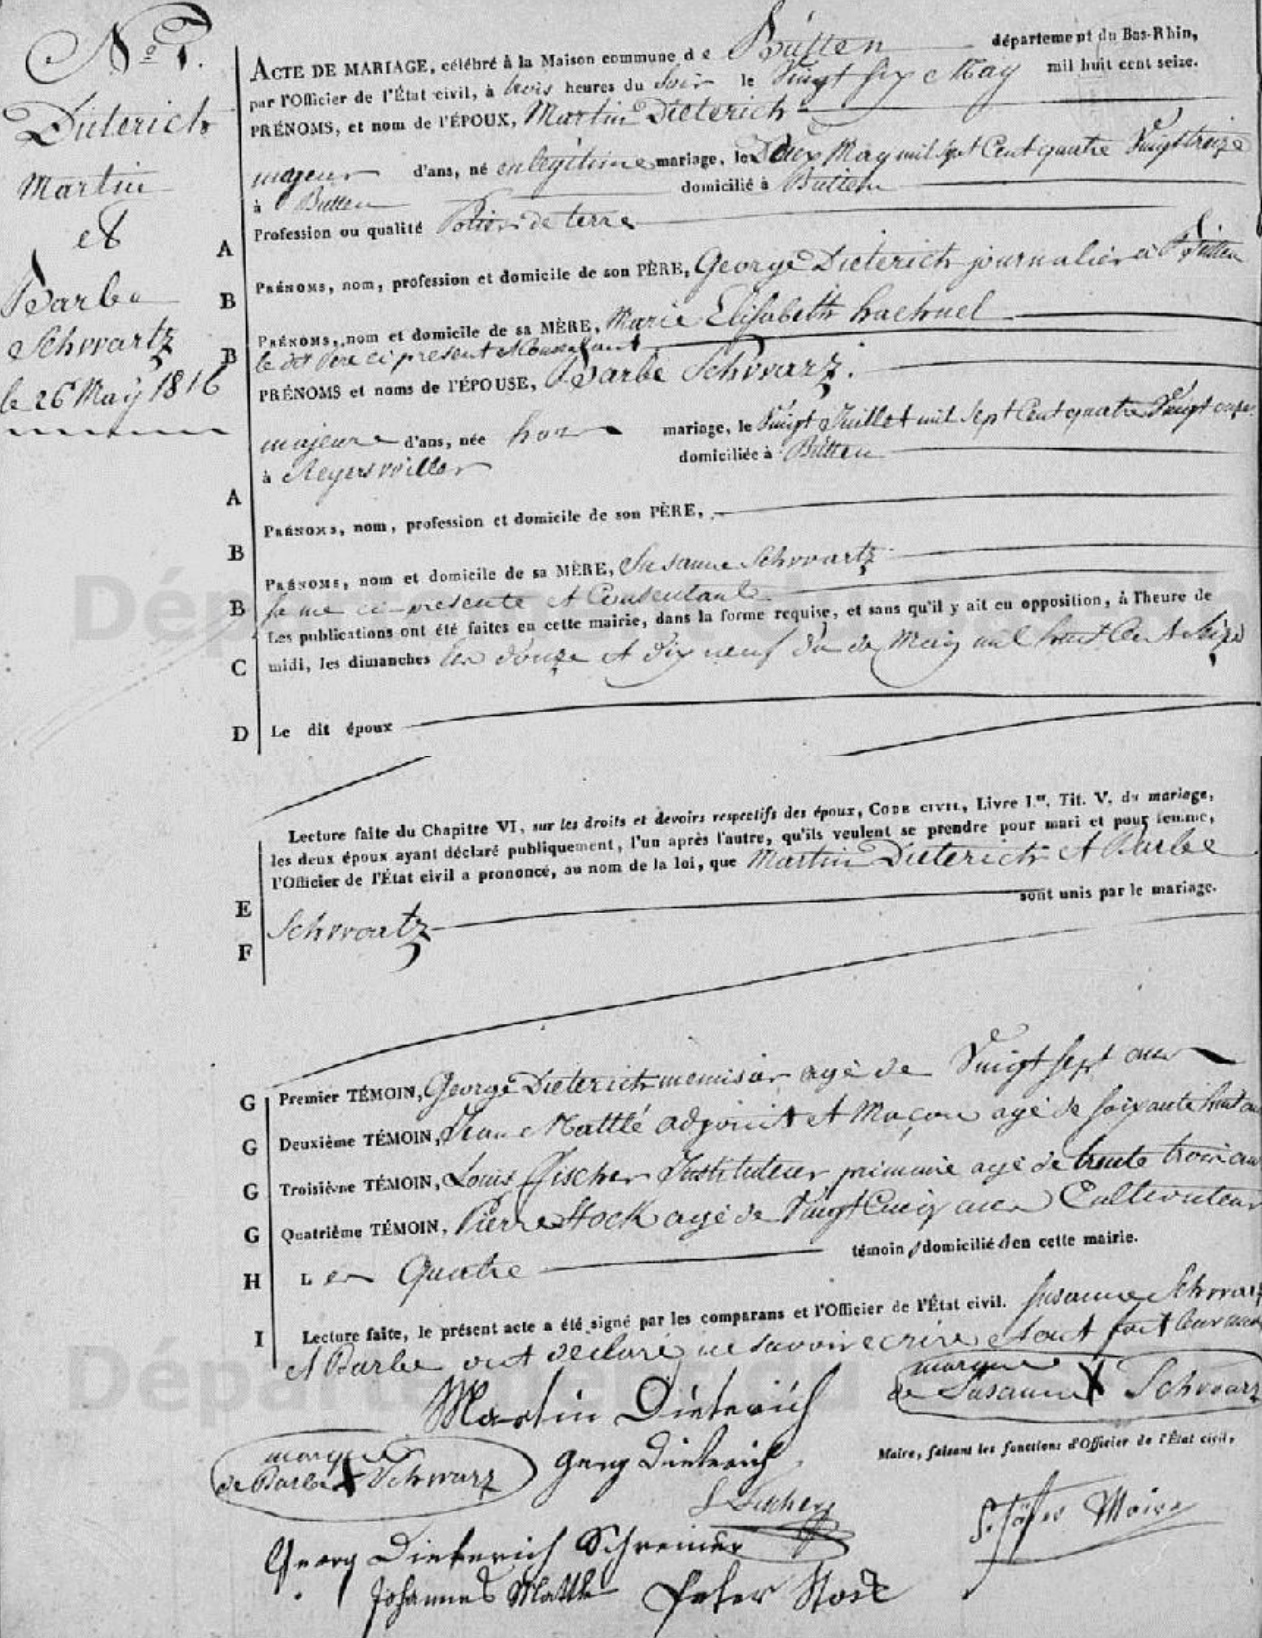 N° 7.
Dieterich
Martin
et
Barbe
Schwartz
le 26 May 1816
ACTE DE MARIAGE, célébré à la Maison commune de Butten département du Bas-Rhin,
par l'Officier de l'État civil, à trois heures du soir le Vingt six May mil huit cent seize.
PRÉNOMS, et nom de l'ÉPOUX, Martin Dieterich
majeur d'ans, né en legitime mariage, le Deux May mil sept Cent quatre Vingt treize
à Butten domicilié à Butten
Profession ou qualité Potier de terre
A
PRÉNOMS, nom, profession et domicile de son PÈRE, George Dieterich journalier à Butten
B
PRÉNOMS, nom et domicile de sa MÈRE, Marie Elisabeth
le dit Pere ci présent et Consentant
B
PRÉNOMS et noms de l'ÉPOUSE, Barbe Schwarz.
majeure d'ans, née hors mariage, le Vingt Juillet mil sept Cent quatre Vingt onze
à Reyerswiller domiciliée à Butten
A
PRÉNOMS, nom, profession et domicile de son PÈRE,
B
PRÉNOMS, nom et domicile de sa MÈRE, Susanne Schwartz
B
ci-presente et Consentante
Les publications ont été faites en cette mairie, dans la forme requise, et sans qu'il y ait eu opposition, à l'heure de
C
midi, les dimanches les douze et dix neuf du de May mil huit Cent Seize
D
Le dit époux
Lecture faite du Chapitre VI, sur les droits et devoirs respectifs des époux, CODE CIVIL, Livre I.er, Tit. V. du mariage,
les deux époux ayant déclaré publiquement, l'un après l'autre, qu'ils veulent se prendre pour mari et pour femme,
l'Officier de l'État civil a prononcé, au nom de la loi, que Martin Dieterich et Barbe
E
Schwartz sont unis par le mariage.
F
G Premier TÉMOIN, George Dieterich menisier agé de Vingt sept ans
G Deuxième TÉMOIN, Jean Mattlé adjoint et Maçon agé de soixante huit ans
G Troisième TÉMOIN, Louis Fischer Instituteur primaire agé de trente trois ans
G Quatrième TÉMOIN, Pierre Stock agé de Vingt Cinq ans Cultivateur
H Les Quatre témoins domiciliés en cette mairie.
I Lecture faite, le présent acte a été signé par les comparans et l'Officier de l'État civil. Susanne Schwarz
et Barbe ont declaré ne savoir ecrire et ont fait leur
marque
de Susanne X Schwarz
Martin Dieterich
marque
de Barbe X Schwarz
Georg Dieterich
Maire, faisant les fonctions d'Officier de l'État civil,
L Fischer
Maire
Georg Dieterich Schreiner
Johannes Mattle Peter Stock
Département du